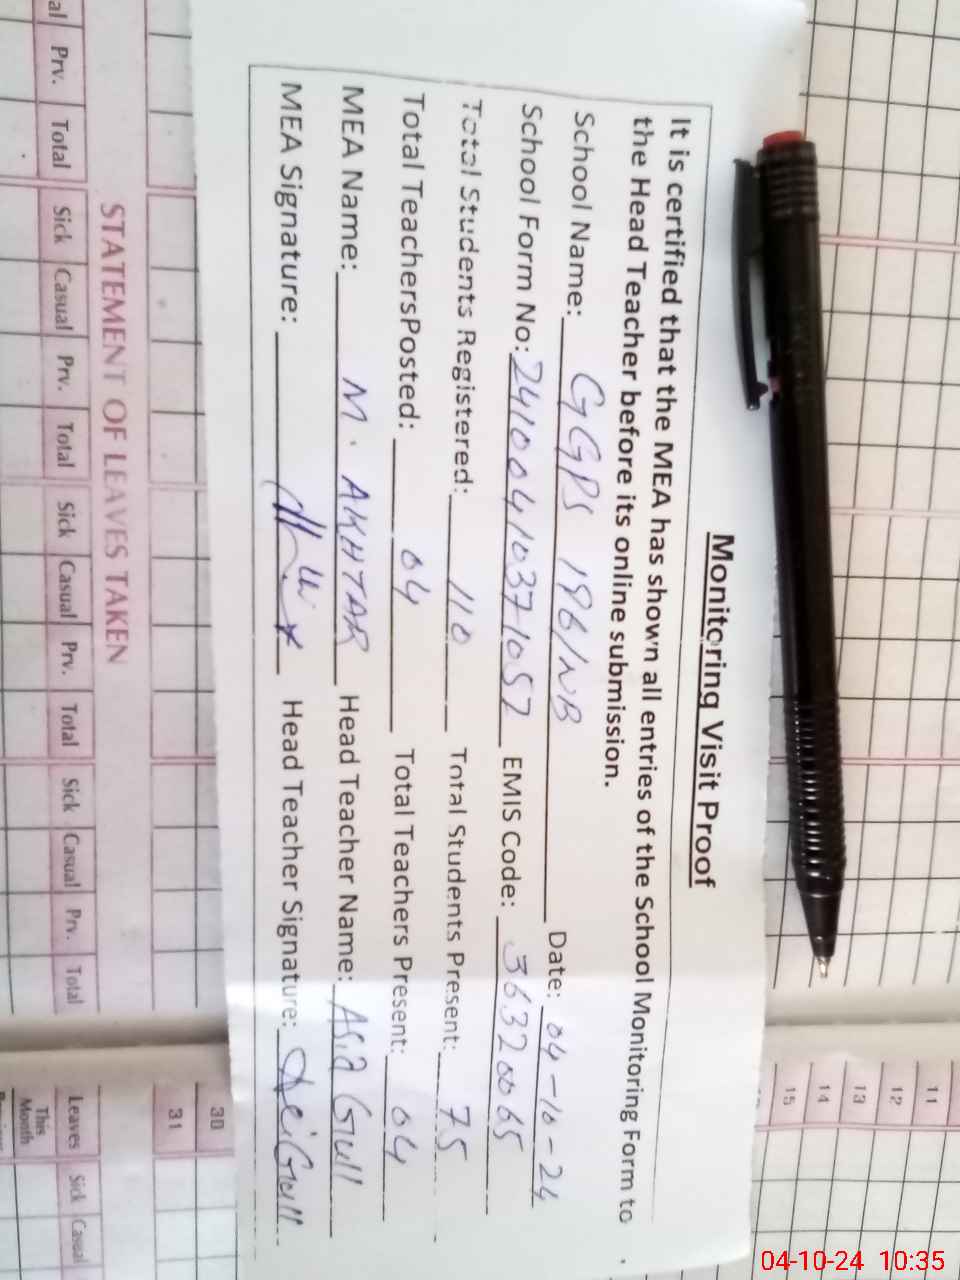 Monitoring Visit Proof
It is certified that the MEA has shown all entries of the School Monitoring Form to
the Head Teacher before its online submission.
School Name: GGPS 186/NB Date: 04-10-24
School Form No: 24100410371057 EMIS Code: 36320065
Total Students Registered: 110 Total Students Present: 75
Total TeachersPosted: 04 Total Teachers Present: 04
MEA Name: M. AKHTAR Head Teacher Name: Asia Gull
MEA Signature: Head Teacher Signature:
STATEMENT OF LEAVES TAKEN
Prv. Total Sick Casual Prv. Total Sick Casual Prv. Total Sick Casual Prv. Total
11
12
13
14
15
30
31
Leaves Sick Casual
This
Month
04-10-24 10:35